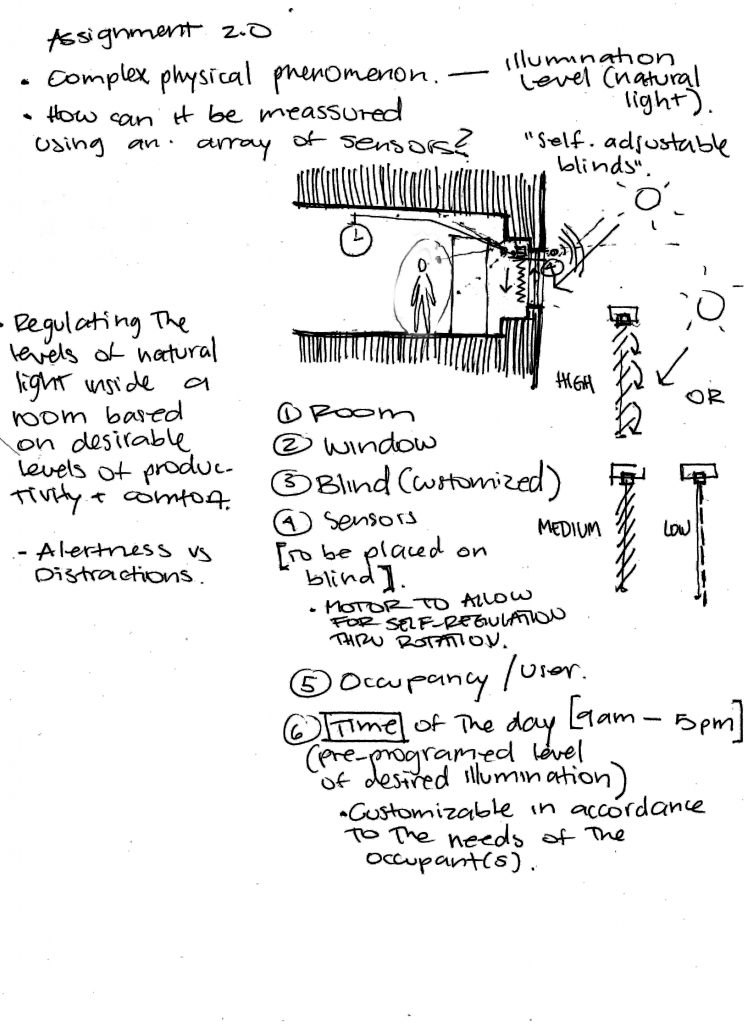 Assignment 2.0
• Complex physical phenomenon. — illumination
level (natural
light).
• How can it be meassured
using an. array of sensors?
"self. adjustable
blinds".
L
4
• Regulating The
levels of natural
light inside a
room based
on desirable
levels of produc-
tivity + comfort.
- Alertness vs
Distractions.
HIGH
OR
MEDIUM
LOW
① Room
② window
③ Blind (customized)
④ Sensors
[To be placed on
blind].
• MOTOR TO ALLOW
FOR SELF-REGULATION
THRU ROTATION.
⑤ Occupancy / User.
⑥ Time of The day [9am – 5pm]
(pre-programed level
of desired illumination)
• Customizable in accordance
To The needs of The
occupant(s).